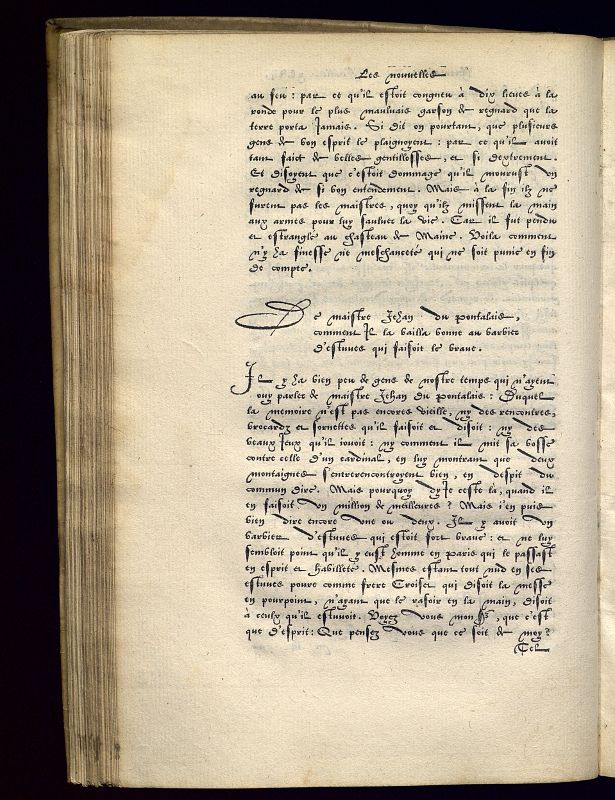 Les nouvelles
au feu : par ce qu'il estoit congneu à dix lieues à la
ronde pour le plus mauluais garson de regnard que la
terre porta Jamais. Si dit on pourtant, que plusieurs
gens de bon esprit le plaignoyent : par ce qu'il avoit
tant faict de belles gentillesses, et si dextrement.
Et disoyent que c'estoit dommage qu'il mourust un
regnard de si bon entendement. Mais à la fin ilz ne
furent pas les maistres, quoy qu'ilz missent la main
aux armes pour luy sauluer la vie. Car il fut pendu
et estranglé au chasteau de Maine. Voila comment
n'y ha finesse ne meschanceté qui ne soit punie en fin
de compte.
De maistre Jehan du Pontalais,
comment Il la bailla bonne au barbier
d'estuves qui faisoit le brave.
Il y ha bien peu de gens de nostre temps qui n'ayent
ouy parler de maistre Jehan du Pontalais : Duquel
la memoire n'est pas encores vieille, ny des rencontres,
brocardz et sornettes qu'il faisoit et disoit : ny des
beaux Jeux qu'il iouoit : ny comment il mit sa bosse
contre celle d'un cardinal, en luy montrant que deux
montaignes s'entrerencontroyent bien, en despit du
commun dire. Mais pourquoy dy Ie ceste la, quand il
en faisoit un million de meilleures ? Mais i'en puis
bien dire encore une ou deux. Il y avoit un
barbier d'estuves qui estoit fort brave : et ne luy
sembloit point qu'il y eust homme en Paris qui le passast
en esprit et habilleté. Mesmes estant tout nud en ses
estuves povre comme frere Croiset qui disoit la messe
en pourpoint, n'ayant que le rasoir en la main, disoit
à ceulx qu'il estuvoit. Voyez vous mon, que c'est
que d'esprit : Que pensez vous que ce soit de moy ?
Tel